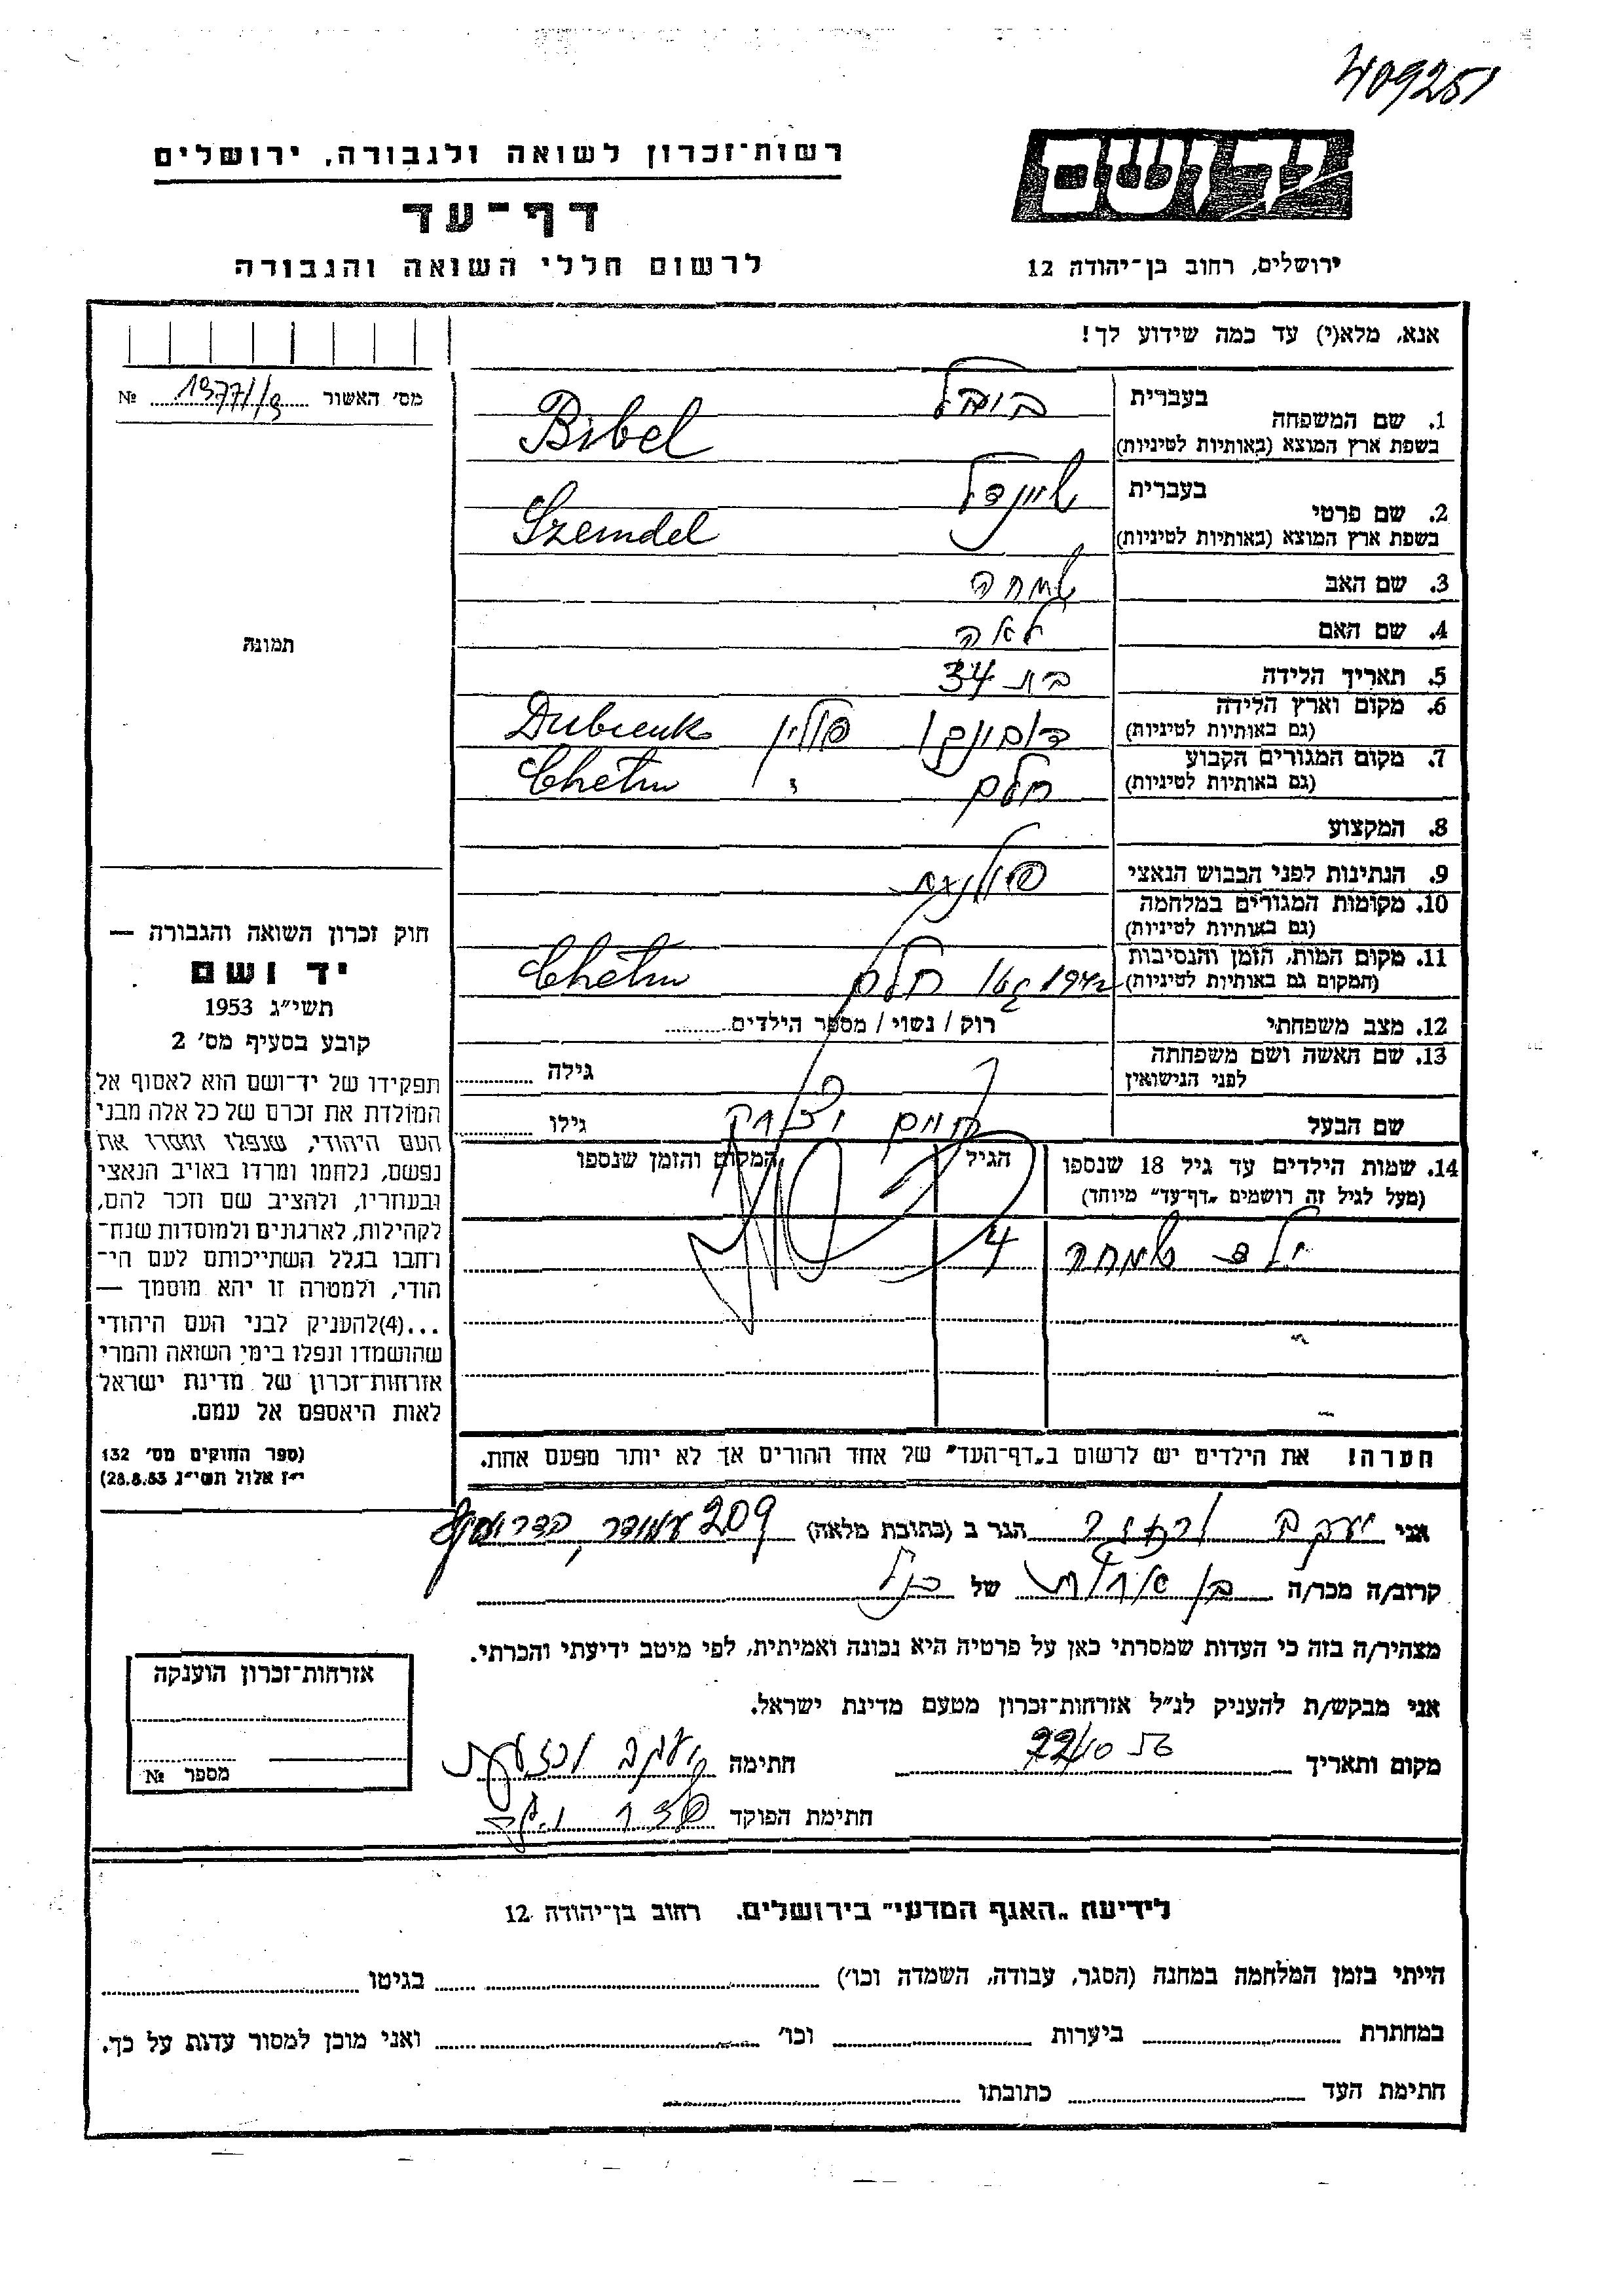 409251
יד ושם
רשות־זכרון לשואה ולגבורה, ירושלים
דף־עד
לרשום חללי השואה והגבורה
ירושלים, רחוב בן־יהודה 12
אנא, מלא(י) עד כמה שידוע לך!
מס' האשור № 1977/19
1. שם המשפחה בעברית ביבל
בשפת ארץ המוצא (באותיות לטיניות) Bibel
2. שם פרטי בעברית שיינדל
בשפת ארץ המוצא (באותיות לטיניות) Szemdel
3. שם האב שמחה
4. שם האם לאה
5. תאריך הלידה בת 34
6. מקום וארץ הלידה
(גם באותיות לטיניות) פולין Dubienk
7. מקום המגורים הקבוע
(גם באותיות לטיניות) חלם Chełm
8. המקצוע
9. הנתינות לפני הכבוש הנאצי פולנית
10. מקומות המגורים במלחמה
(גם באותיות לטיניות)
11. מקום המות, הזמן והנסיבות
(המקום גם באותיות לטיניות) 1942 חלם Chełm
12. מצב משפחתי רוק / נשוי / מספר הילדים
13. שם האשה ושם משפחתה
לפני הנישואין גילה
שם הבעל חיים יצחק גילו
14. שמות הילדים עד גיל 18 שנספו
(מעל לגיל זה רושמים „דף־עד" מיוחד)
הגיל
המקום והזמן שנספו
ילד שמחה 4
הערה! את הילדים יש לרשום ב„דף־העד" של אחד ההורים אך לא יותר מפעם אחת.
תמונה
חוק זכרון השואה והגבורה —
יד ושם
תשי"ג 1953
קובע בסעיף מס' 2
תפקידו של יד־ושם הוא לאסוף אל
המולדת את זכרם של כל אלה מבני
העם היהודי, שנפלו ומסרו את
נפשם, נלחמו ומרדו באויב הנאצי
ובעוזריו, ולהציב שם וזכר להם,
לקהילות, לארגונים ולמוסדות שנח־
רחבו בגלל השתייכותם לעם הי־
הודי, ולמטרה זו יהא מוסמך —
...(4)להעניק לבני העם היהודי
שהושמדו ונפלו בימי השואה והמרי
אזרחות־זכרון של מדינת ישראל
לאות היאספם אל עמם.
(ספר החוקים מס' 132
י"ז אלול תשי"ג 28.8.53)
אני יעקב הגר ב (כתובת מלאה) 209
קרוב/ה מכר/ה של
מצהיר/ה בזה כי העדות שמסרתי כאן על פרטיה היא נכונה ואמיתית, לפי מיטב ידיעתי והכרתי.
אני מבקש/ת להעניק לנ"ל אזרחות־זכרון מטעם מדינת ישראל.
מקום ותאריך חתימה יעקב
חתימת הפוקד
אזרחות־זכרון הוענקה
מספר №
לידיעת „האגף המדעי" בירושלים. רחוב בן־יהודה 12
הייתי בזמן המלחמה במחנה (הסגר, עבודה, השמדה וכו') בגיטו
במחתרת ביערות וכו' ואני מוכן למסור עדות על כך.
חתימת העד כתובתו